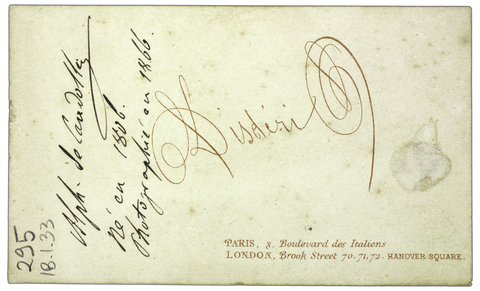 Alph. de Candolle
Né en 1806.
Photographié en 1866.
Disdéri
PARIS, 8, Boulevard des Italiens
LONDON, Brook Street 70. 71, 72. HANOVER SQUARE.
295
18.1.33